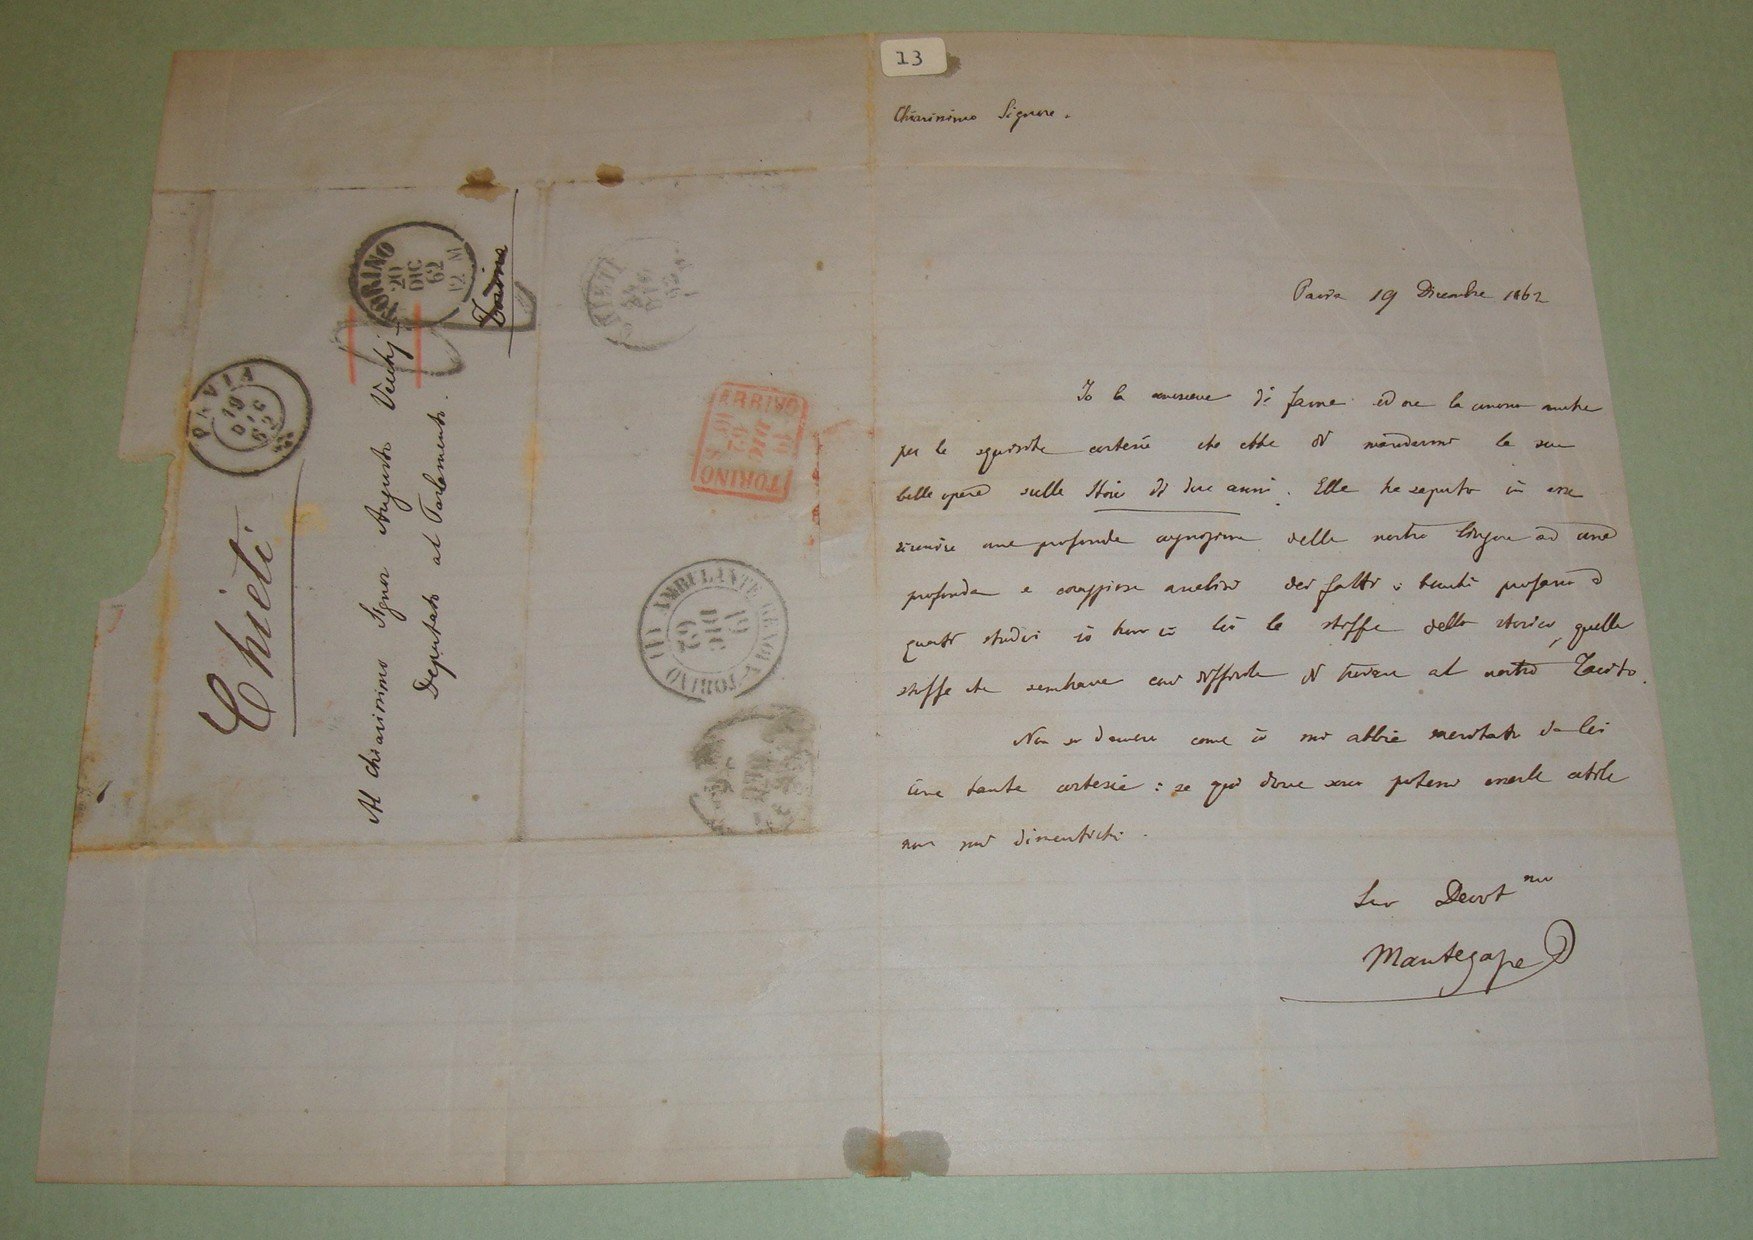 13
Chiarissimo Signore.
Pavia 19 Dicembre 1862
Io la conosceva di fama ed ora la conosco anche
per la squisita cortesia che ebbe di mandarmi la sua
bella opera sulla Storia di due anni. Ella ha saputo in essa
riunire una profonda cognizione della nostra lingua ad una
profonda e coraggiosa analisi dei fatti:
questi studii io trovo in lei la stoffa dello storico, quella
stoffa che sembrava così difficile di trovare al nostro Tacito.
Non so davvero come io mi abbia meritato da lei
una tanta cortesia: se qui dove sono potessi esserle utile
non mi dimentichi.
Suo Devot mo
Mantegazza
Al chiarissimo Signor Augusto Vecchj
Deputato al Parlamento.
Torino
Chieti
PAVIA
19
DIC
62
TORINO
20
DIC
62
12 M
CHIETI
ARRIVO
TORINO
AMBULANTE GENOVA-TORINO
19
DIC
62